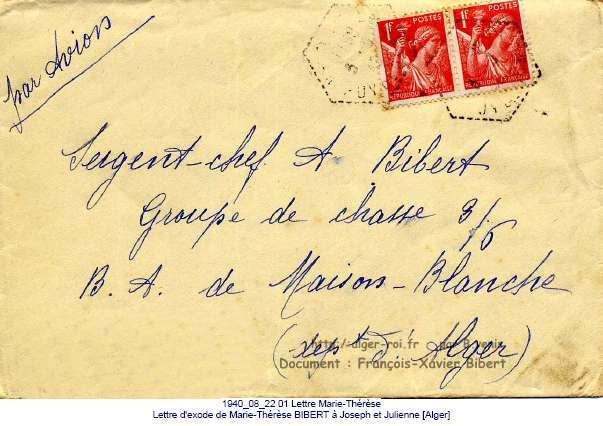 par Avion
1F POSTES 1F POSTES
REPUBLIQUE FRANÇAISE REPUBLIQUE FRANÇAISE
Sergent-chef A Bibert
Groupe de chasse 3/6
B. A. de Maison-Blanche
(dépt d'Alger)
http://alger-roi.fr
Document : François-Xavier Bibert
1940_08_22 01 Lettre Marie-Thérèse
Lettre d'exode de Marie-Thérèse BIBERT à Joseph et Julienne [Alger]